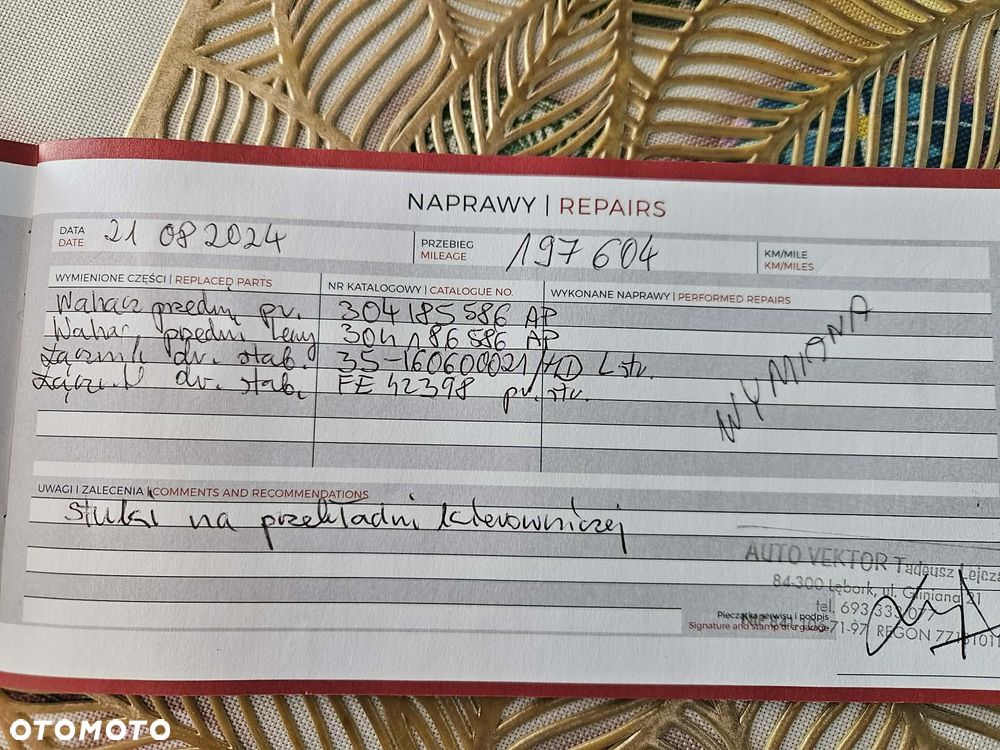 NAPRAWY | REPAIRS
DATA
DATE
21 08 2024
PRZEBIEG
MILEAGE
197 604
KM/MILE
KM/MILES
WYMIENIONE CZĘŚCI | REPLACED PARTS
NR KATALOGOWY | CATALOGUE NO.
WYKONANE NAPRAWY | PERFORMED REPAIRS
Wahacz przedni pr. 304185586 AP
Wahacz przedni lewy 304186586 AP
Łącznik dr. stab. 35-160600021/HD L str.
Łącznik dr. stab. FE 42398 pr. str.
WYMIANA
UWAGI I ZALECENIA | COMMENTS AND RECOMMENDATIONS
Stuki na przekładni kierowniczej
AUTO VEKTOR Tadeusz Lejcza
84-300 Lębork, ul. Gliniana 21
tel. 693 33 077
Pieczątka serwisu i podpis
Signature and stamp of a garage
71-97 REGON
OTOMOTO